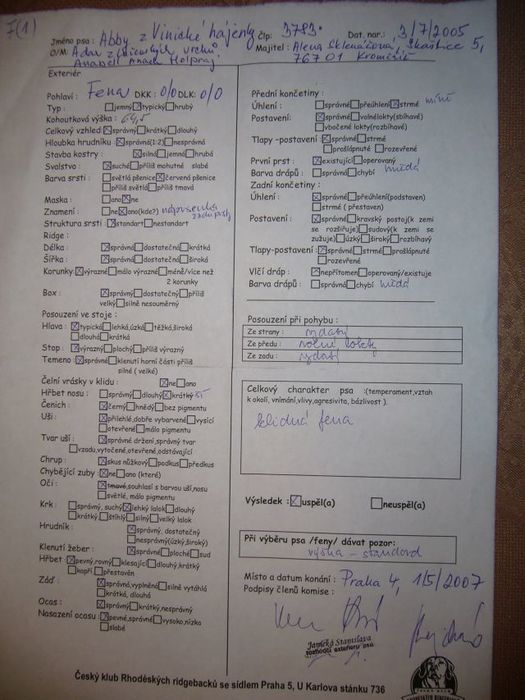 F(1)
Jméno psa : Abby z Vinické hájenky Čip: 3783. Dat. nar.: 3/7/2005
O/M: Majitel: Alena Sklenářová, Skaštice 5,
76701 Kroměříž
Exteriér
Pohlaví : Fena DKK : 0/0 DLK: 0/0
Typ : jemný typický hrubý
Kohoutková výška : 64,5
Celkový vzhled správný krátký dlouhý
Hloubka hrudníku správná(1:2) nesprávná
Stavba kostry silná jemná hrubá
Svalstvo : suché příliš mohutné slabé
Barva srsti : světlá pšenice červená pšenice
příliš světlá příliš tmavá
Maska : ano ne
Znamení : ne ano(kde?)
Struktura srsti standart nestandart
Ridge :
Délka : správná dostatečná krátká
Šířka : správná dostatečná široká
Korunky výrazné málo výrazné méně/více než
2 korunky
Box : správný dostatečný příliš
velký silně nesouměrný
Posouzení ve stoje :
Hlava : typická lehká,úzká těžká,široká
dlouhá krátká
Stop : výrazný plochý příliš výrazný
Temeno : správné klenutí horní části příliš
silné ( velké)
Čelní vrásky v klidu : ne ano
Hřbet nosu : správný dlouhý krátký
Čenich : černý hnědý bez pigmentu
Uši : přilehlé,dobře vybarvené vysící
otevřené málo pigmentu
Tvar uší : správné držení,správný tvar
vzadu,vytočené,otevřené,odstávající
Chrup : skus nůžkový podkus předkus
Chybějící zuby ne ano (které)
Oči : tmavé,souhlasí s barvou uší,nosu
světlé, málo pigmentu
Krk : správný, suchý lehký lalok dlouhý
krátký štíhlý silný velký lalok
Hrudník : správný, dostatečný
nesprávný(úzký,široký)
Klenutí žeber : správné ploché sud
Hřbet : pevný,rovný klesající dlouhý,krátký
kapří přestavěn
Záď : správná,vyplněná silně vytáhlá
krátká, dlouhá
Ocas : správný krátký,nesprávný
Nasazení ocasu pevné,správné vysoko,nízko
slabé
Přední končetiny :
Úhlení : správné přeúhlení strmé mírně
Postavení: správné volné lokty(sbíhavé)
vbočené lokty(rozbíhavé)
Tlapy -postavení : správné strmé
prošlápnuté rozevřené
První prst : existující operovaný
Barva drápů : správná chybí
Zadní končetiny :
Úhlení : správné přeúhlení(podstaven)
strmé ( přestaven)
Postavení : správné kravský postoj(k zemi
se rozšiřuje) sudový(k zemi se
zužuje) úzký široký rozbíhavý
Tlapy-postavení : správné strmé prošlápnuté
rozevřené
Vlčí dráp : nepřítomen operovaný/existuje
Barva drápů : správná chybí
Posouzení při pohybu :
Ze strany :
Ze předu : volné lokty
Ze zadu :
Celkový charakter psa :(temperament,vztah
k okolí, vnímání,vlivy,agresivita, bázlivost ).
klidná fena
Výsledek : uspěl(a) neuspěl(a)
Při výběru psa /feny/ dávat pozor:
výška - standard
Místo a datum konání : Praha 4, 1/5/2007
Podpisy členů komise :
Stanislava
rozhodčí exteriéru psů
Český klub Rhodéských ridgebacků se sídlem Praha 5, U Karlova stánku 736